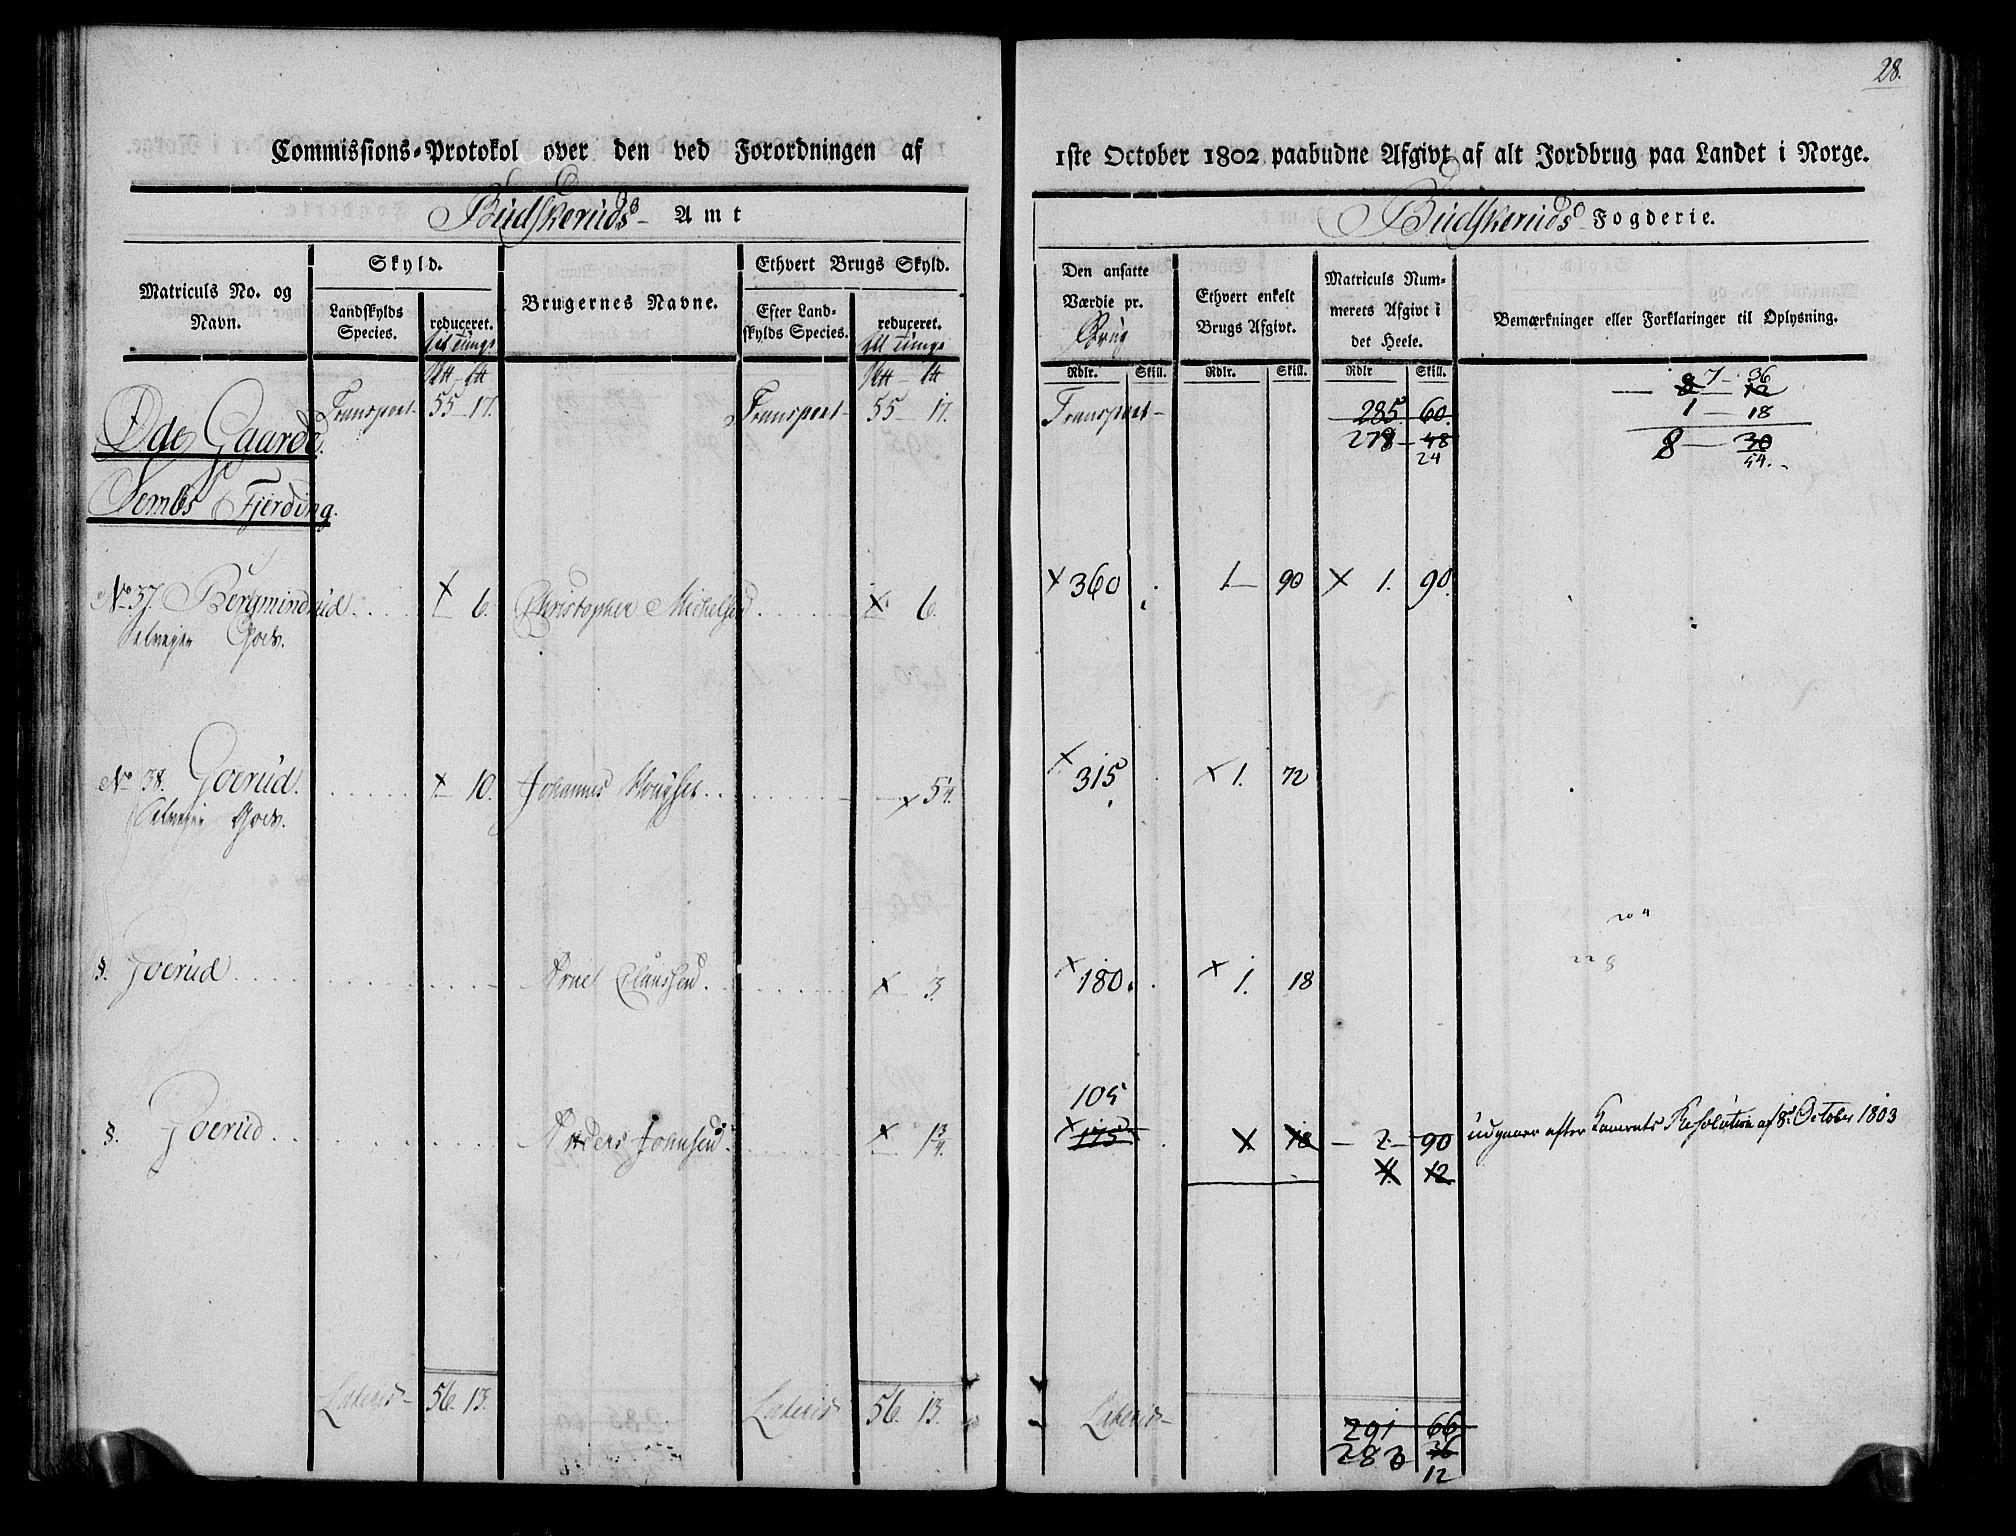 28.
Commissions-Protokol over den ved Forordningen af
1ste October 1802 paabudne Afgivt af alt Jordbrug paa Landet i Norge.
Budskeruds Amt
Budskeruds Fogderie.
Matriculs No. og Navn.
Skyld.
Landskylds Species.
reduceret. til Tunge
Brugernes Navne.
Ethvert Brugs Skyld.
Efter Landskylds Species.
reduceret. til Tunge
Den ansatte Værdie pr. Brug
Ethvert enkelt Brugs Afgivt.
Matriculs Nummerets Afgivt i det Heele.
Bemærkninger eller Forklaringer til Oplysning.
Rdlr. Skill. Rdlr. Skill. Rdlr Skill.
Transport 55 17. Transport 55 17. Transport 285 60.
278 48
24
7 36
8 12
1 18
8 30
54.
Øde Gaarde.
Sembs Fjerding.
No 37. Bergmindrud 6. Christopher Michelsen 6. 360 1 90 1. 90.
Selveier Gods.
No 38. Goerud. 10. Johannes 5 1/4. 315 1. 72
Selveier Gods.
§. Goerud 3. 180. 1. 18
Arne Claussen
105
§. Goerud Anders Johnsen 1 3/4. 175 1. 18 2 90 udgaaer efter Kamrets Resolution af 8de October 1803
4. 12
Lateris 56. 13. Lateris 56. 13. Lateris 291 66
283 36
12